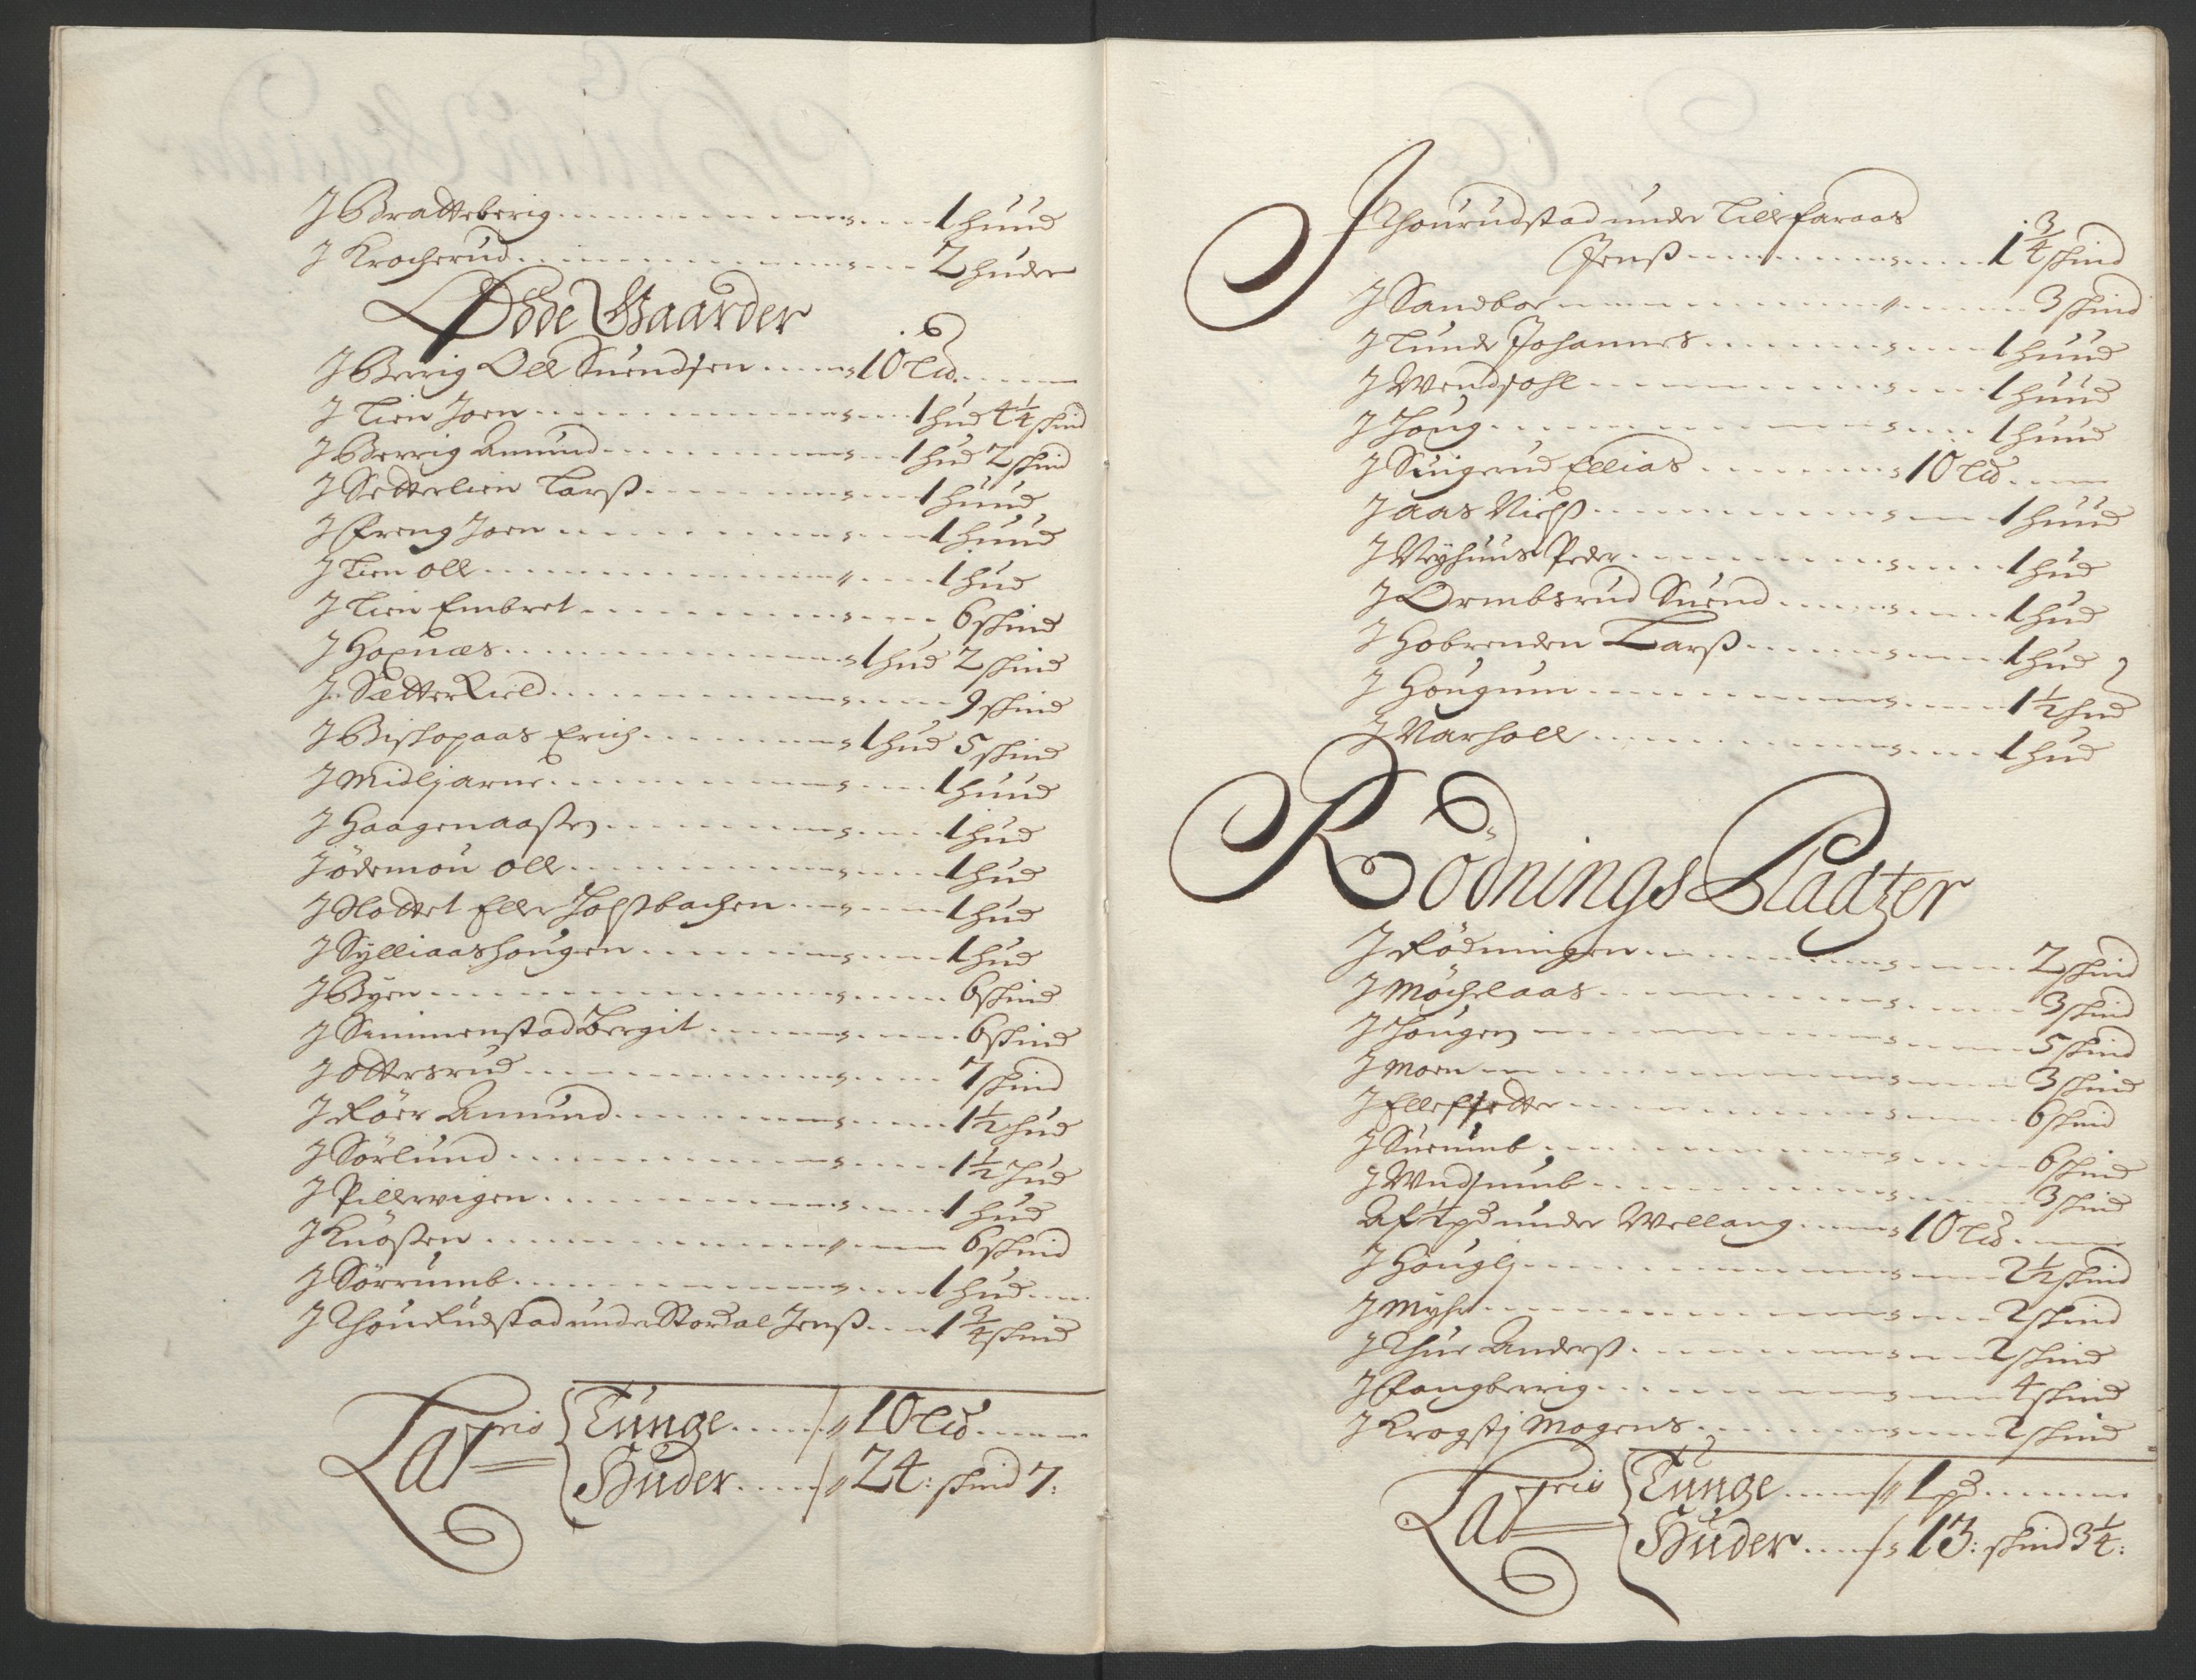 J Bratteberig 1 huud
J Krocherud 2 huder
Øde Gaarder
J Berrig Oll Suendsen 10 Lld.
J Lien Joen 1 hud 4 1/4 skind
J Berrig Amund 1 hud 2 skind
J Setterlien Larß 1 huud
J Ereng Joen 1 huud
J Lien oll 1 hud
J Lien Embret 6 skind
J Hopnæs 1 hud 2 skind
J Sætter Kield 9 skind
J Biskopaas Erich 1 hud 5 skind
J Midtjarne 1 huud
J Haagenaasen 1 hud
J ødemou oll 1 hud
J Slottet Eller Holstbachen 1 hud
J Sylliaashougen 1 hud
J Byen 6 skind
J Simmenstad Bergit 6 skind
J Ottersrud 7 skind
J Röer Amund 1 1/2 hud
J Sörlund 1 1/2 hud
J Pillervigen 1 hud
J Knösen 6 skind
J Sörrumb 1 hud
J Thourudstad under Stordal Jenß 1 3/4 skind
Lateris Tunge 10 Lld
Huder 24: skind 7:
J Thourudstad under Lillefaraas
Jenß 1 3/4 skind
J Sandboe 3 skind
J Lunde Johannes 1 huud
J Wendsohl 1 huud
J Houg 1 huud
J Suigerud Ellias 10 Lld
J aas Nielß 1 huud
J Nyhuus Peder 1 hud
J Ormbsrud Suend 1 hud
J Hobrenden Larß 1 hud
J Hougum 1 1/2 hud
J Varholl 1 hud
Rödnings Pladtzer
J Rödningen 2 skind
J Möchelaas 3 skind
J Hougen 5 skind
J Moen 3 skind
J Ellefsetter 6 skind
J Suenumb 6 skind
J Wudsumb 3 skind
Af 1/2 pd under Wellang 10 Lld
J Houglj 2 1/2 skind
J Myhr 2 skind
J Thue Anderß 2 skind
J Fangberrig 4 skind
J Krogstj Mogens 2 skind
Lateris Tunge 1 pd
Huder 13: skind 3 1/4: